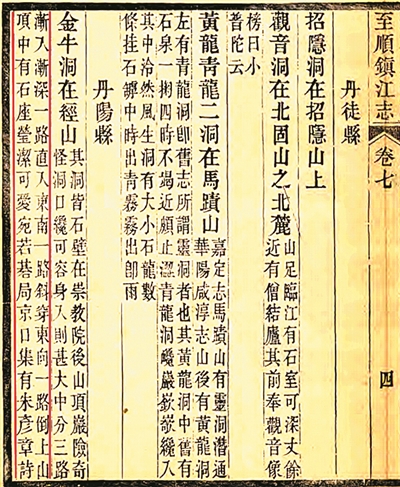 至順鎮江志
卷七
四
丹徒縣
招隱洞在招隱山上
觀音洞在北固山之北麓
山足臨江有石室可深丈餘
近有僧結廬其前奉觀音像
榜曰小
普陀云
黃龍青龍二洞在馬蹟山
嘉定志馬蹟山有靈洞潛通
華陽咸淳志山後有黃龍洞
左有青龍洞卽舊志所謂靈洞者也其黃龍洞中舊有
石泉一掬四時不竭近頗止澀青龍洞巉巖嶔嶔纔入
其中泠然風生洞有大小石龍數
條挂石罅中時出青霧霧出卽雨
丹陽縣
金牛洞在經山
其洞皆石壁在崇教院後山頂巖險奇
怪洞口纔可容身入則甚大中分三路
漸入漸深一路直入東南一路斜穿東向一路倒上山
項中有石座瑩潔可愛宛若碁局京口集有朱彥章詩